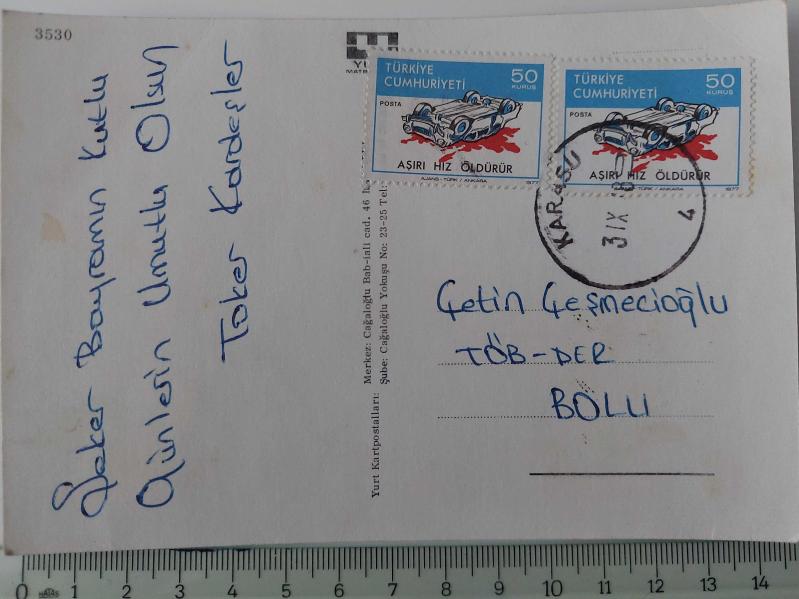 3530
Şeker Bayramın Kutlu
Günlerin Umutlu Olsun
Toker Kardeşler
TÜRKİYE
CUMHURİYETİ
50
KURUŞ
POSTA
AŞIRI HIZ ÖLDÜRÜR
AJANS-TÜRK / ANKARA
1977
TÜRKİYE
CUMHURİYETİ
50
KURUŞ
POSTA
AŞIRI HIZ ÖLDÜRÜR
AJANS-TÜRK / ANKARA
1977
KARASU
4
Yurt Kartpostalları:
Merkez: Cağaloğlu Bab-ıali cad. 46
Şube: Cağaloğlu Yokuşu No: 23-25 Tel:
Çetin Çeşmecioğlu
TÖB-DER
BOLU
0 1 2 3 4 5 6 7 8 9 10 11 12 13 14